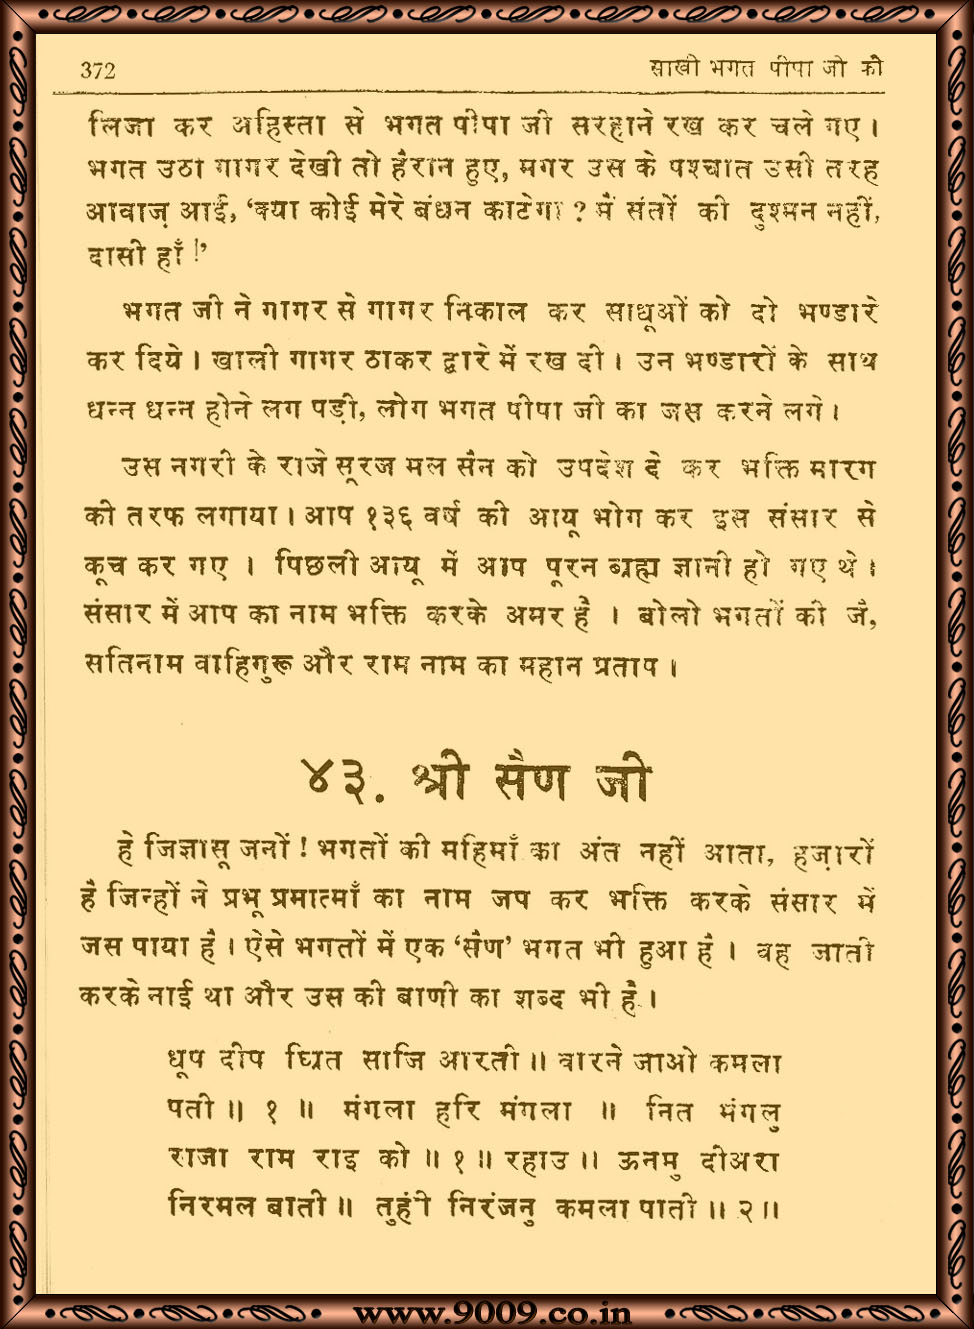 372
साखी भगत पीपा जी की
लिजा कर अहिस्ता से भगत पीपा जी सरहाने रख कर चले गए।
भगत उठा गागर देखी तो हैरान हुए, मगर उस के पश्चात उसी तरह
आवाज़ आई, ‘क्या कोई मेरे बंधन काटेगा ? मैं संतों की दुश्मन नहीं,
दासी हाँ !’
भगत जी ने गागर से गागर निकाल कर साधूओं को दो भण्डारे
कर दिये। खाली गागर ठाकर द्वारे में रख दी। उन भण्डारों के साथ
धन्न धन्न होने लग पड़ी, लोग भगत पीपा जी का जस करने लगे।
उस नगरी के राजे सूरज मल सैन को उपदेश दे कर भक्ति मारग
की तरफ लगाया। आप १३६ वर्ष की आयू भोग कर इस संसार से
कूच कर गए । पिछली आयू में आप पूरन ब्रह्म ज्ञानी हो गए थे।
संसार में आप का नाम भक्ति करके अमर है । बोलो भगतों की जै,
सतिनाम वाहिगुरू और राम नाम का महान प्रताप।
४३. श्री सैण जी
हे जिज्ञासू जनों ! भगतों की महिमाँ का अंत नहीं आता, हज़ारों
है जिन्हों ने प्रभू प्रमात्माँ का नाम जप कर भक्ति करके संसार में
जस पाया है। ऐसे भगतों में एक ‘सैण’ भगत भी हुआ है। वह जाती
करके नाई था और उस की बाणी का शब्द भी है।
धूप दीप घ्रित साजि आरती॥ वारने जाओ कमला
पती॥ १ ॥ मंगला हरि मंगला ॥ नित मंगलु
राजा राम राइ को॥१॥ रहाउ॥ ऊनमु दीअरा
निरमल बाती॥ तुहंी निरंजनु कमला पाती॥२॥
www.9009.co.in